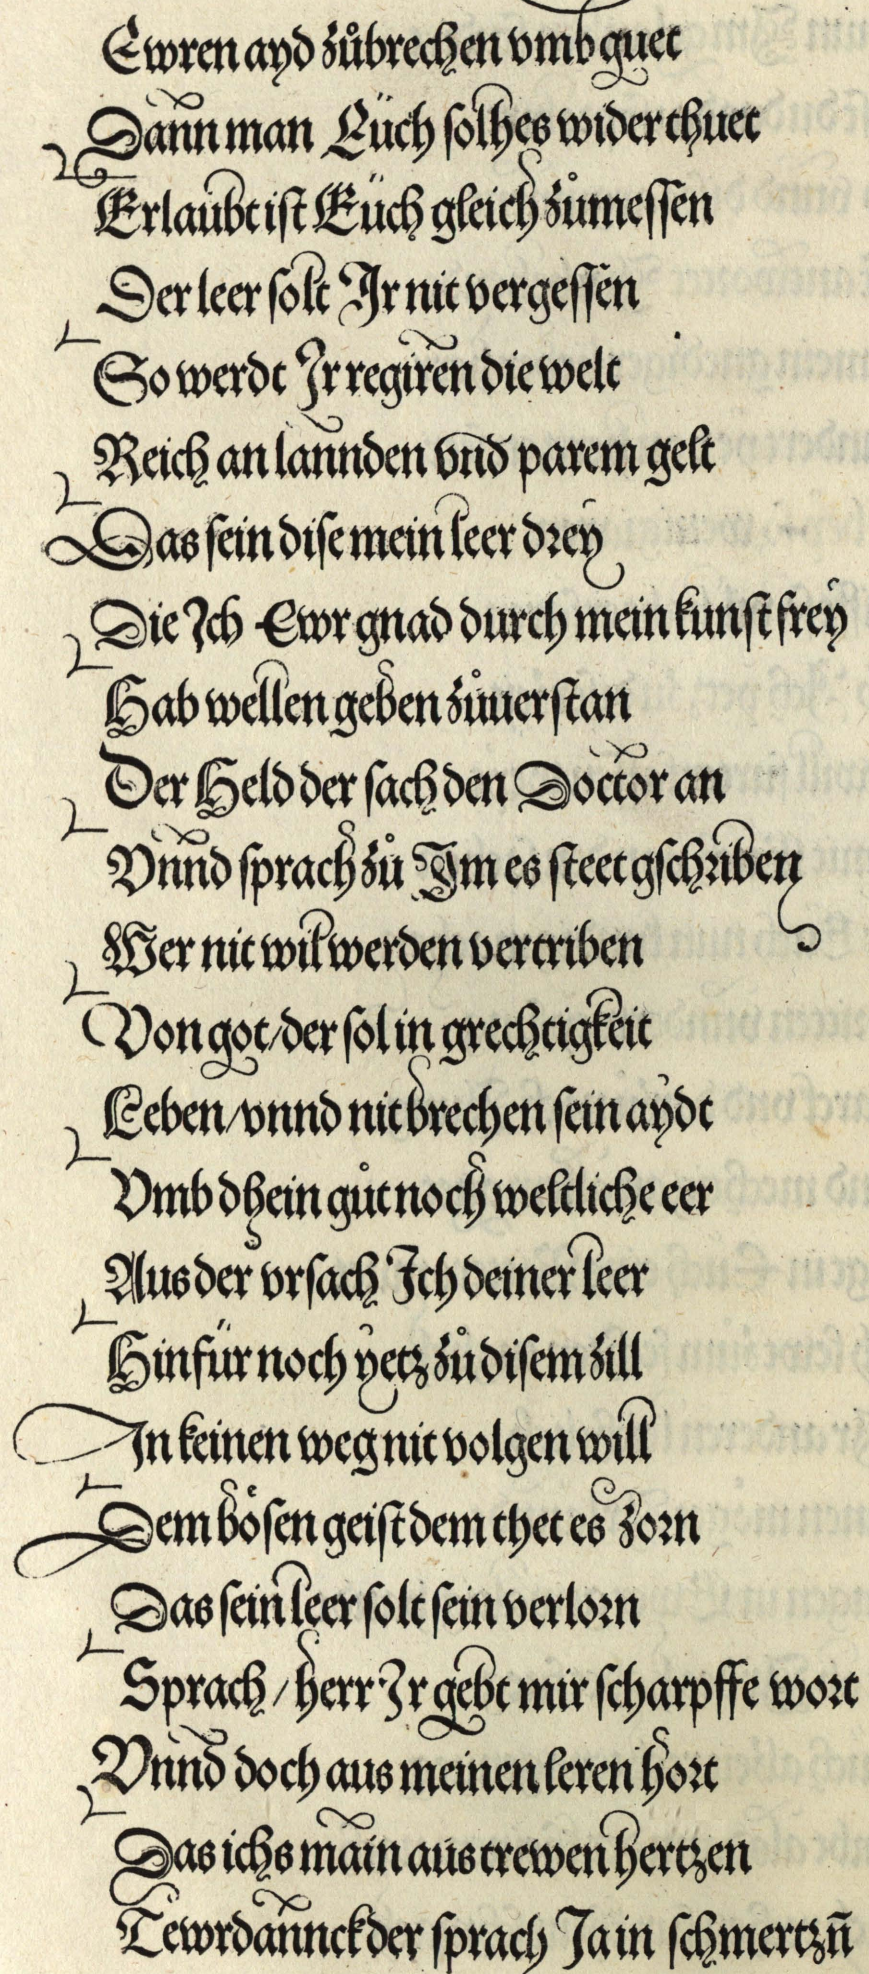 Ewren ayd zůbrechen vmb guet
Dann man Eüch solhes wider thuet
Erlaubt ist Eüch gleich zůmessen
Der leer solt Jr nit vergessen
So werdt Jr regiren die welt
Reich an lannden vnd parem gelt
Das sein dise mein leer drey
Die Jch Ewr gnad durch mein kunst frey
Hab wellen geben zůuerstan
Der Held der sach den Doctor an
Vnnd sprach zů Jm es steet gschriben
Wer nit wil werden vertriben
Von got/der sol in grechtigkeit
Leben/vnnd nit brechen sein aydt
Vmb dhein gůt noch weltliche eer
Aus der vrsach Jch deiner leer
Hinfür noch yetz zů disem zill
Jn keinen weg nit volgen will
Dem bösen geist dem thet es zorn
Das sein leer solt sein verlorn
Sprach/herr Jr gebt mir scharpffe wort
Vnnd doch aus meinen leren hort
Das ichs main aus trewen hertzen
Tewrdannck der sprach Ja in schmertzn̄